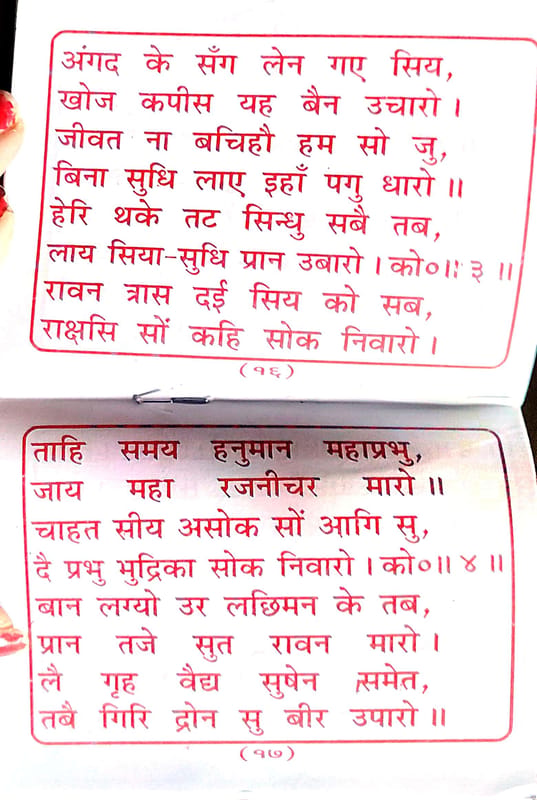 अंगद के सँग लेन गए सिय,
खोज कपीस यह बैन उचारो ।
जीवत ना बचिहौ हम सो जु,
बिना सुधि लाए इहाँ पगु धारो ॥
हेरि थके तट सिन्धु सबै तब,
लाय सिया-सुधि प्रान उबारो । को०॥ ३ ॥
रावन त्रास दई सिय को सब,
राक्षसि सों कहि सोक निवारो ।
(१६)
ताहि समय हनुमान महाप्रभु,
जाय महा रजनीचर मारो ॥
चाहत सीय असोक सों आगि सु,
दै प्रभु भुद्रिका सोक निवारो । को०॥ ४ ॥
बान लग्यो उर लछिमन के तब,
प्रान तजे सुत रावन मारो ।
लै गृह वैद्य सुषेन समेत,
तबै गिरि द्रोन सु बीर उपारो ॥
(१७)